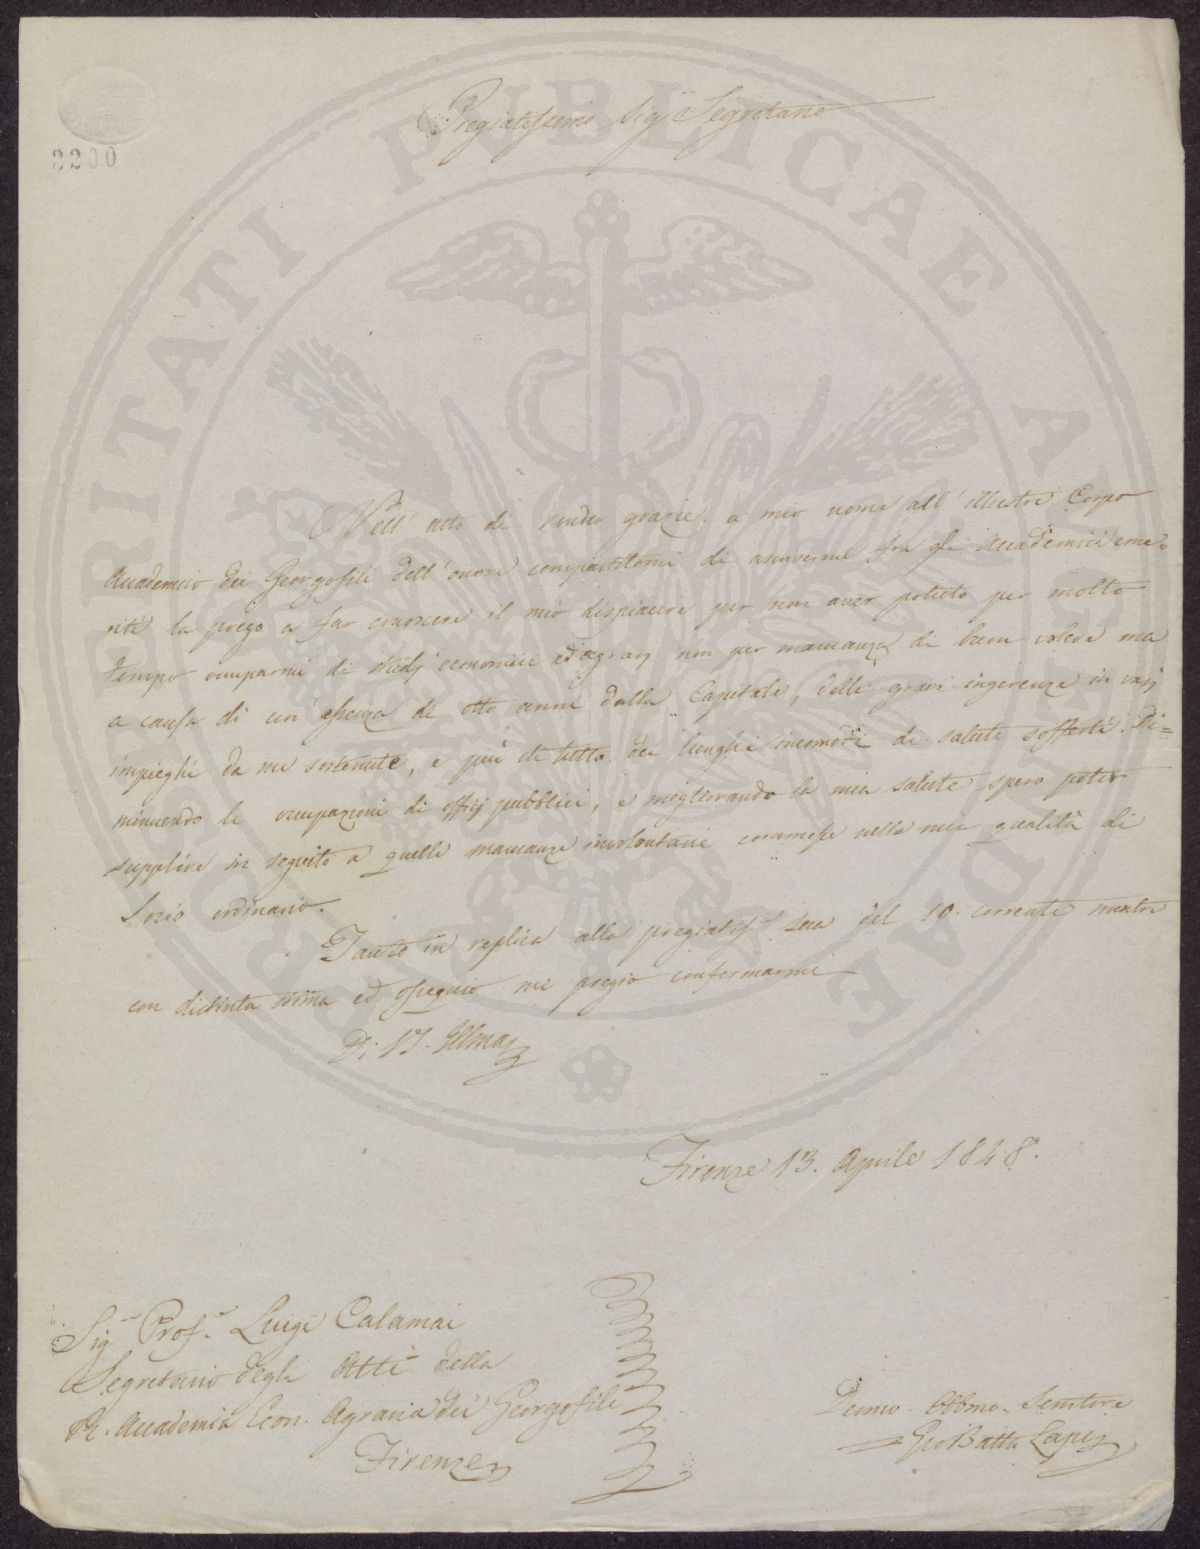 2200
Pregiatissimo Sig.e Segretario
Nell' atto di render grazie a mio nome all' illustre Corpo
Accademico dei Georgofili dell' onore compartitomi di ascrivermi fra gli Accademici eme=
riti la prego a far conoscere il mio dispiacere per non aver potuto per molto
tempo occuparmi di studj economici ed agrarj non per mancanza di buon volere ma
a causa di un' assenza di otto anni dalla Capitale, delle gravi ingerenze in varj
impieghi da me sostenute, e più di tutto dei lunghi incomodi di salute sofferti. Di=
minuendo le occupazioni di offizj pubblici, e migliorando la mia salute spero poter
supplire in seguito a quelle mancanze involontarie commesse nella mia qualità di
Socio ordinario.
Tanto in replica alla pregiatiss.a sua del 10. corrente mentre
con distinta stima ed ossequio mi pregio confermarmi
Di V.S. Illma
Firenze 13. Aprile 1848.
Sig.r Prof.r Luigi Calamai
Segretario degli Atti della
R. Accademia Econ. Agraria dei Georgofili
Firenze
Devmo. Obbmo. Servitore
Gio Batta Lapi
PROSPERITATI PUBLICAE AUGENDAE